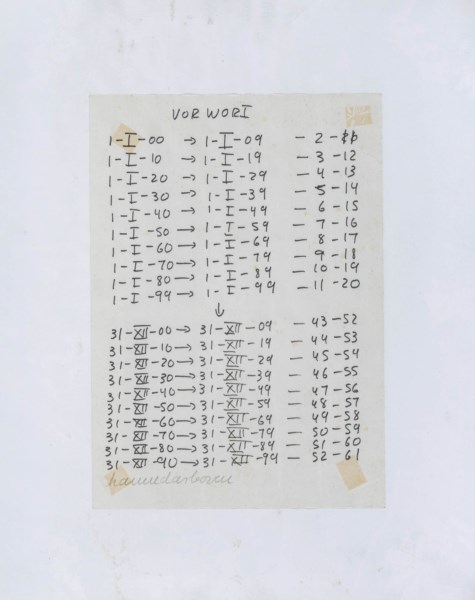 VORWORT
1-I-00 → 1-I-09 - 2 - 11
1-I-10 → 1-I-19 - 3 - 12
1-I-20 → 1-I-29 - 4 - 13
1-I-30 → 1-I-39 - 5 - 14
1-I-40 → 1-I-49 - 6 - 15
1-I-50 → 1-I-59 - 7 - 16
1-I-60 → 1-I-69 - 8 - 17
1-I-70 → 1-I-79 - 9 - 18
1-I-80 → 1-I-89 - 10 - 19
1-I-99 → 1-I-99 - 11 - 20
↓
31-XII-00 → 31-XII-09 - 43 - 52
31-XII-10 → 31-XII-19 - 44 - 53
31-XII-20 → 31-XII-29 - 45 - 54
31-XII-30 → 31-XII-39 - 46 - 55
31-XII-40 → 31-XII-49 - 47 - 56
31-XII-50 → 31-XII-59 - 48 - 57
31-XII-60 → 31-XII-69 - 49 - 58
31-XII-70 → 31-XII-79 - 50 - 59
31-XII-80 → 31-XII-89 - 51 - 60
31-XII-90 → 31-XII-99 - 52 - 61
hanne darboven